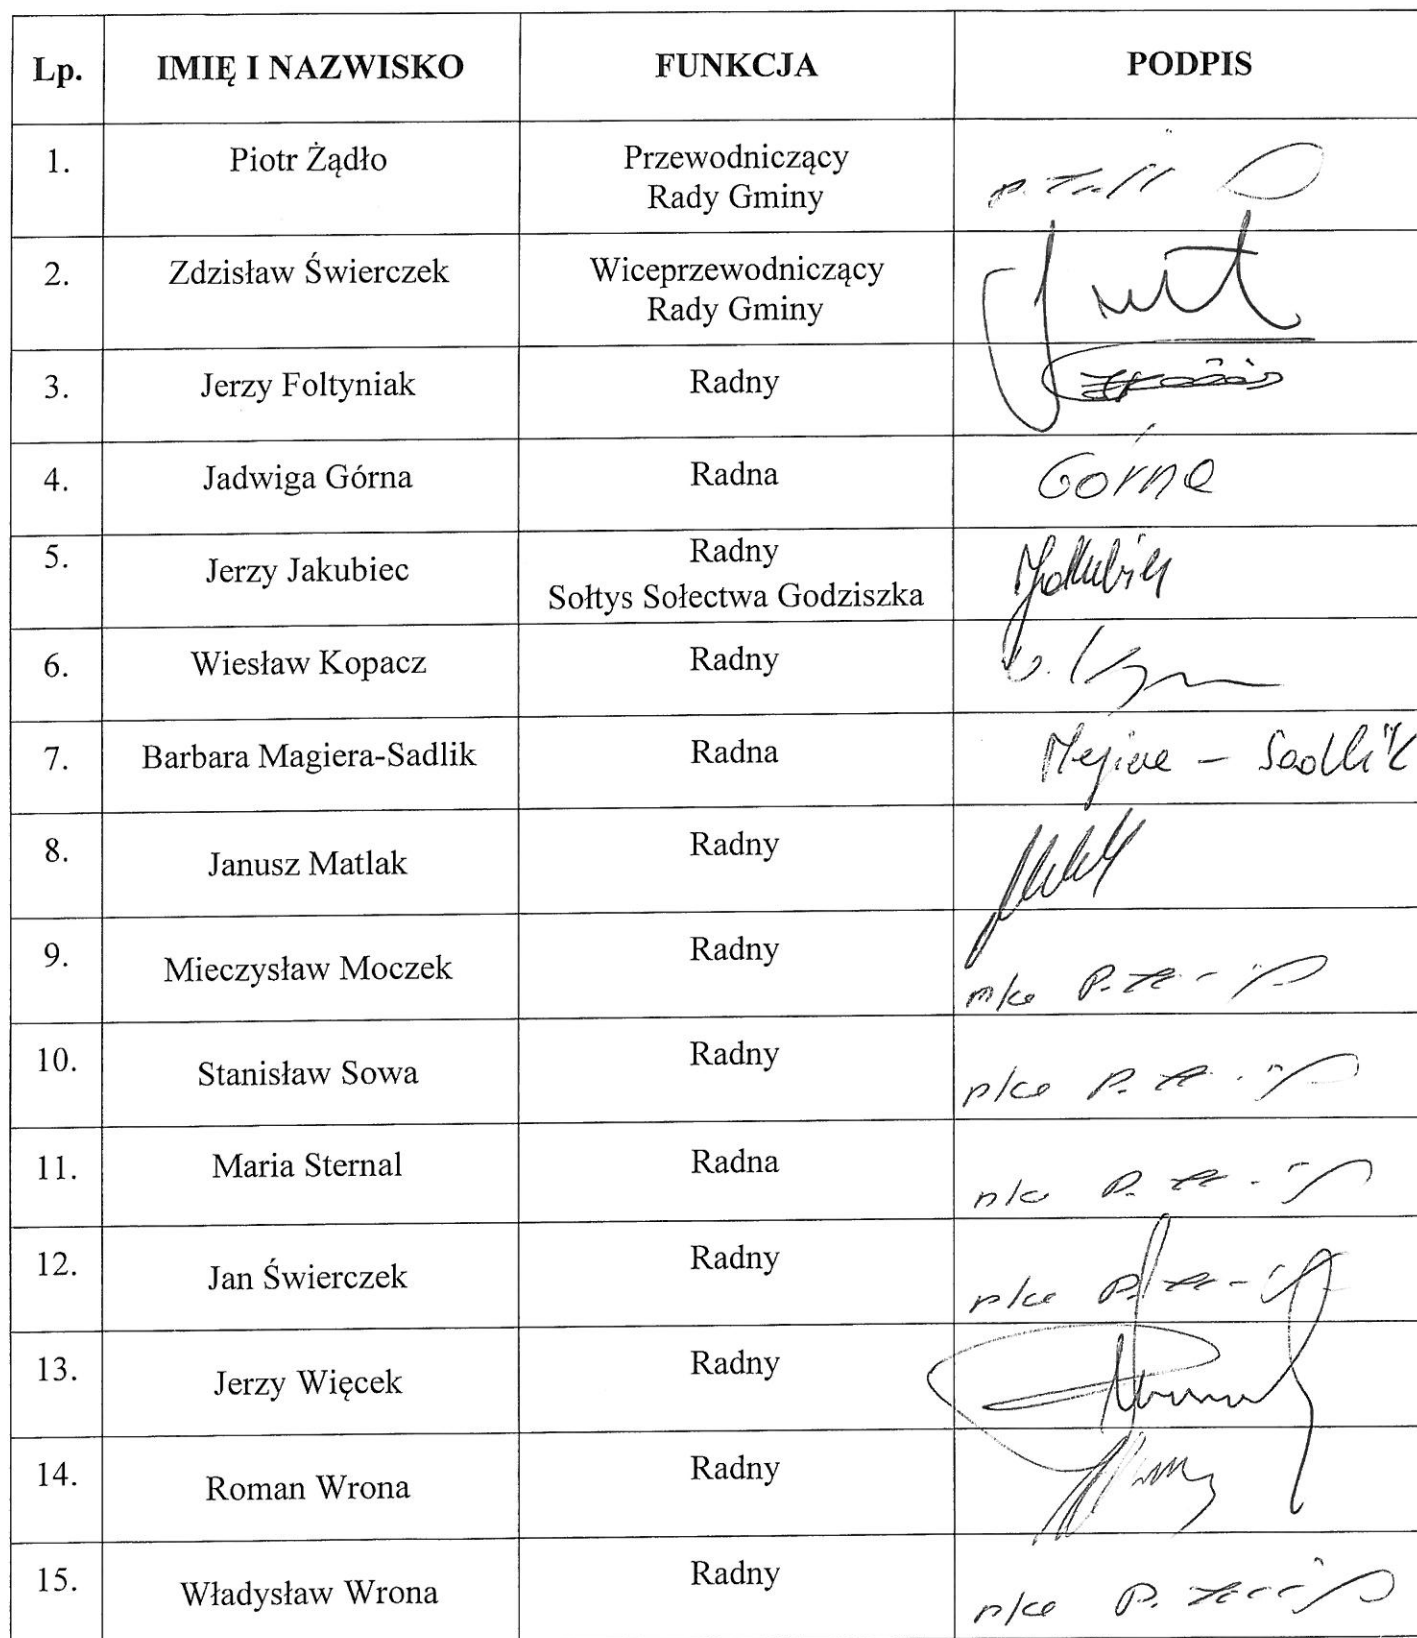 Lp. IMIĘ I NAZWISKO FUNKCJA PODPIS
1. Piotr Żądło Przewodniczący
Rady Gminy
2. Zdzisław Świerczek Wiceprzewodniczący
Rady Gminy
3. Jerzy Foltyniak Radny
4. Jadwiga Górna Radna Górna
5. Jerzy Jakubiec Radny
Sołtys Sołectwa Godziszka
6. Wiesław Kopacz Radny
7. Barbara Magiera-Sadlik Radna - Sadlik
8. Janusz Matlak Radny
9. Mieczysław Moczek Radny
10. Stanisław Sowa Radny
11. Maria Sternal Radna
12. Jan Świerczek Radny
13. Jerzy Więcek Radny
14. Roman Wrona Radny
15. Władysław Wrona Radny